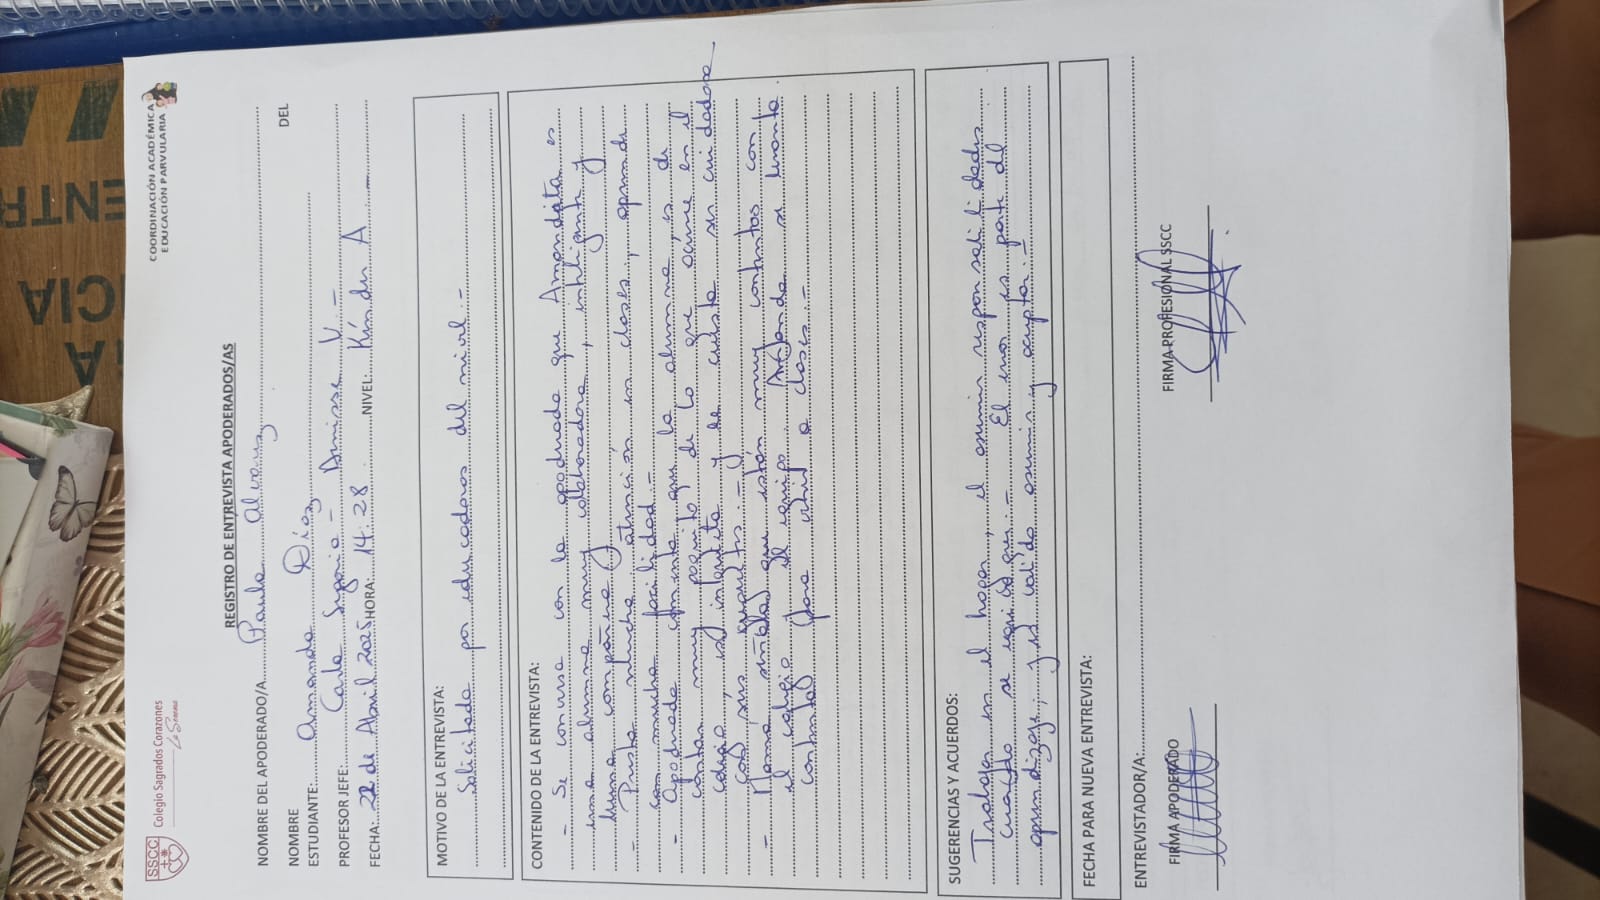 SSCC
Colegio Sagrados Corazones
La Serena
COORDINACIÓN ACADÉMICA
EDUCACIÓN PARVULARIA
REGISTRO DE ENTREVISTA APODERADOS/AS
NOMBRE DEL APODERADO/A Paula Alvarez
NOMBRE DEL
ESTUDIANTE: Amanda Díaz
PROFESOR JEFE: Carla Segovia - Denisse V -
FECHA: 22 de Abril 2025 HORA: 14:28 NIVEL: Kínder A
MOTIVO DE LA ENTREVISTA:
Solicitada por educadoras del nivel.-
CONTENIDO DE LA ENTREVISTA:
- Se conversa con la apoderada que Amandita es
una alumna muy colaboradora, inteligente y
buena compañera
- Presta mucha atención en clases, aprende
con mucha facilidad.-
- Apoderada comenta que la alumna es de
contar muy poquito de lo que ocurre en el
colegio, es inquieta y le cuesta ser cuidadosa
con sus
- Mamá señala que están muy contentos con
el colegio y el equipo. Amanda se levanta
contenta para venir a clases.-
SUGERENCIAS Y ACUERDOS:
Trabajar en el hogar, el asumir responsabilidades
cuando se equivoque.- El error es parte del
aprendizaje, y es válido asumir y aceptar.-
FECHA PARA NUEVA ENTREVISTA:
ENTREVISTADOR/A:
FIRMA APODERADO
FIRMA PROFESIONAL SSCC